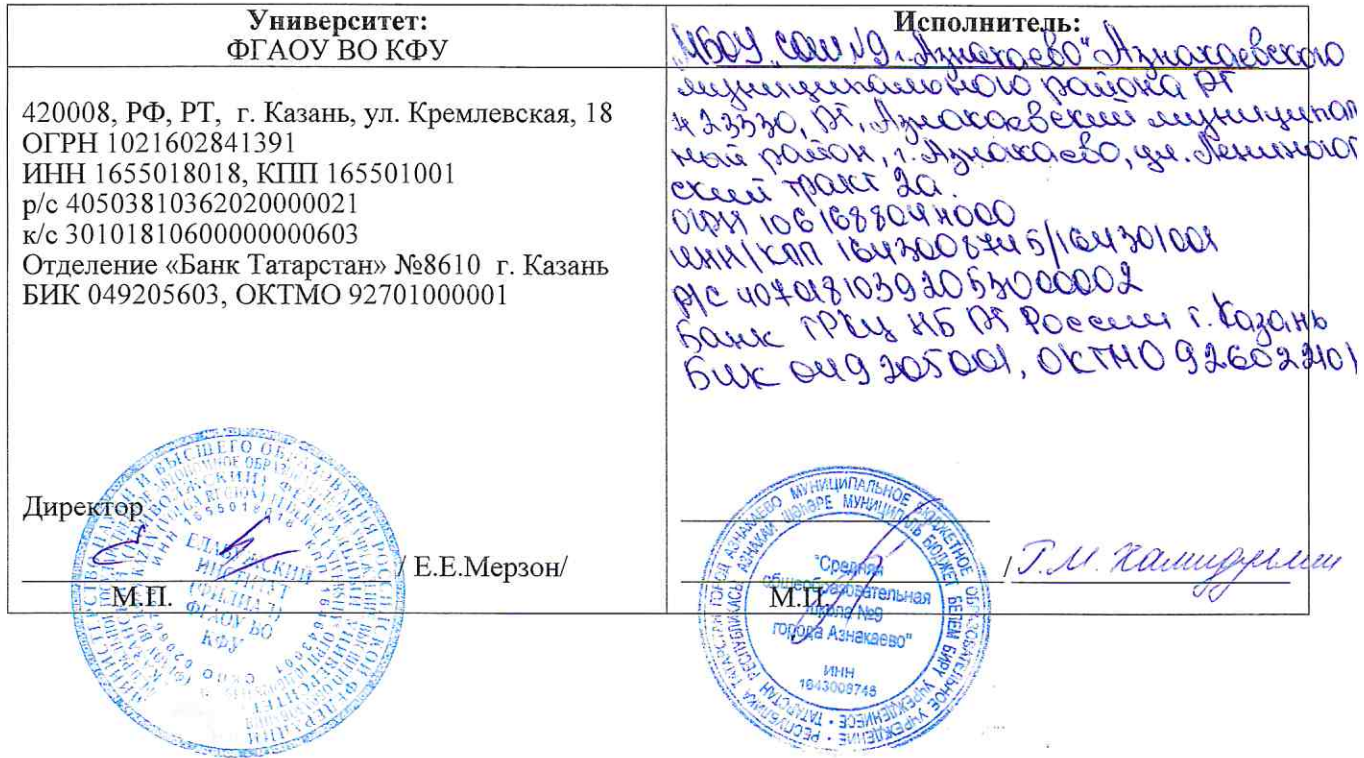 Университет:
ФГАОУ ВО КФУ
420008, РФ, РТ, г. Казань, ул. Кремлевская, 18
ОГРН 1021602841391
ИНН 1655018018, КПП 165501001
р/с 40503810362020000021
к/с 30101810600000000603
Отделение «Банк Татарстан» №8610 г. Казань
БИК 049205603, ОКТМО 92701000001
Директор
/ Е.Е.Мерзон/
М.П.
Исполнитель:
"МБОУ "СОШ №9 г. Азнакаево" Азнакаевского
муниципального района РТ
423330, РТ, Азнакаевский муниципаль
ный район, г. Азнакаево, ул. Лениногор
ский тракт 2а.
ОГРН 1061688044000
ИНН/КПП 1643008745/164301001
р/с 40701810392053000002
Банк ГРКЦ НБ РТ России г. Казань
БИК 049205001, ОКТМО 92602101
/ Г.М. Хамидуллин
М.П.
ЕЛАБУЖСКИЙ
ИНСТИТУТ
(ФИЛИАЛ)
ФГАОУ ВО
КФУ
"Средняя
общеобразовательная
школа №9
города Азнакаево"
ИНН
1643008745